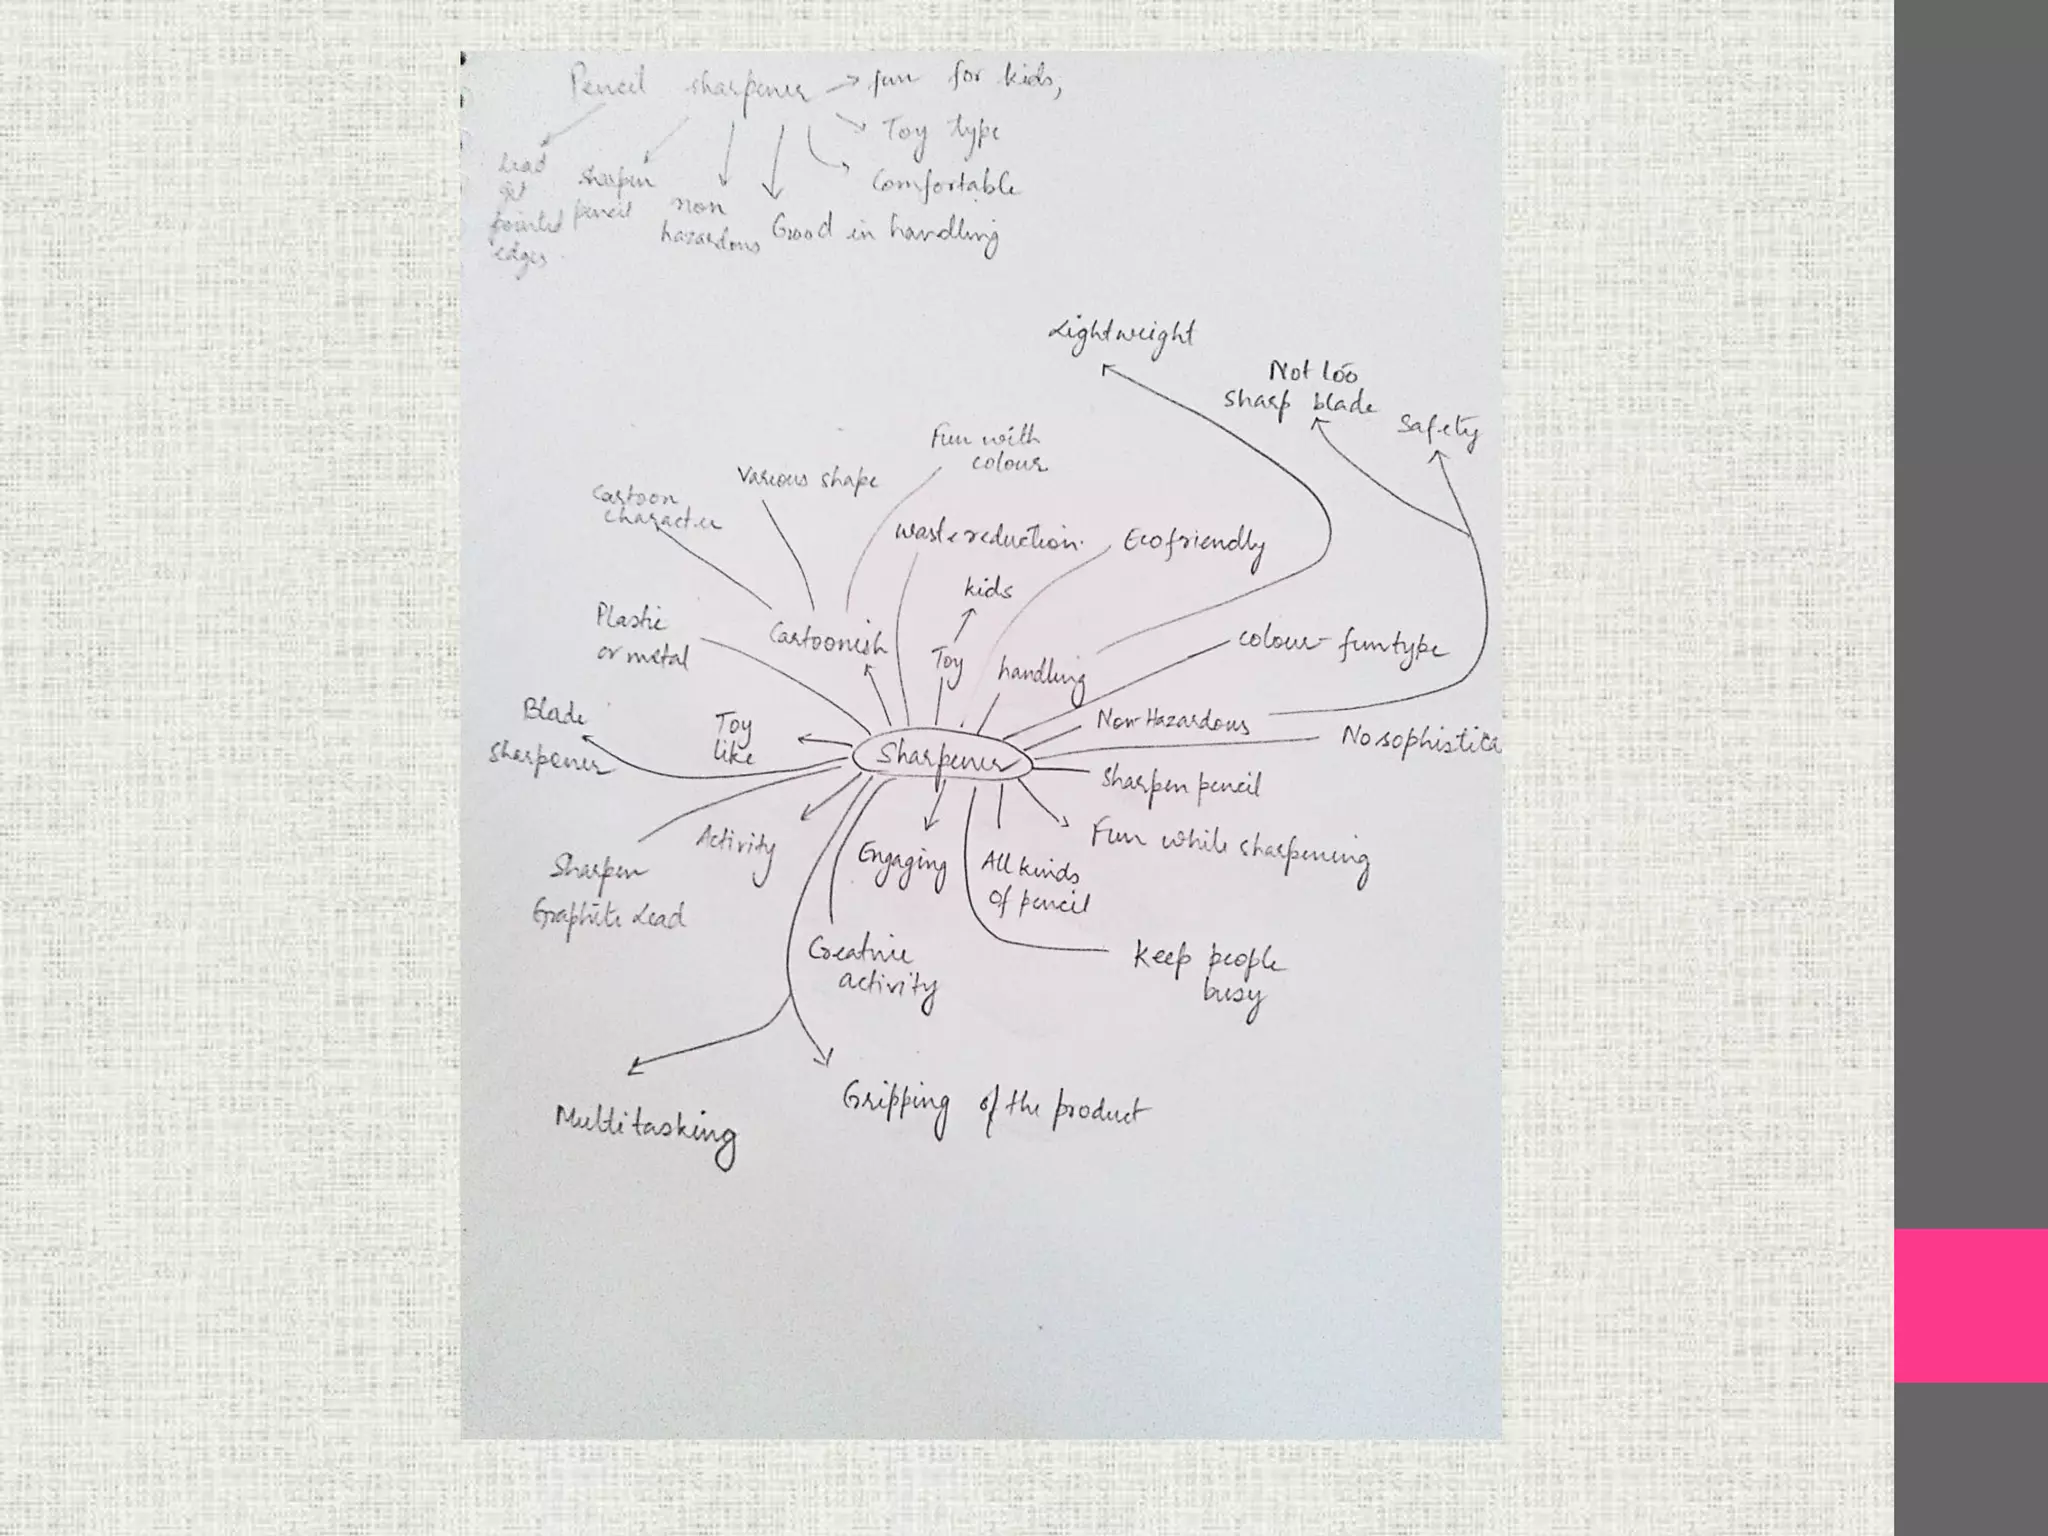 Pencil sharpener → fun for kids,
Toy type
Comfortable
Good in handling
non
hazardous
sharpen
pencil
lead
get
pointed
edges.
Lightweight
Not too
sharp blade
Safety
Fun with
colour
Various shape
Cartoon
character
waste reduction.
Ecofriendly
kids
Plastic
or metal
Cartoonish
Toy
handling
colour - fun type
Blade
sharpener
Toy
like
Sharpener
Non-Hazardous
No sophistica
Sharpen pencil
Activity
Engaging
All kinds
of pencil
Fun while sharpening
Sharpen
Graphite Lead
Creative
activity
Keep people
busy
Multitasking
Gripping of the product